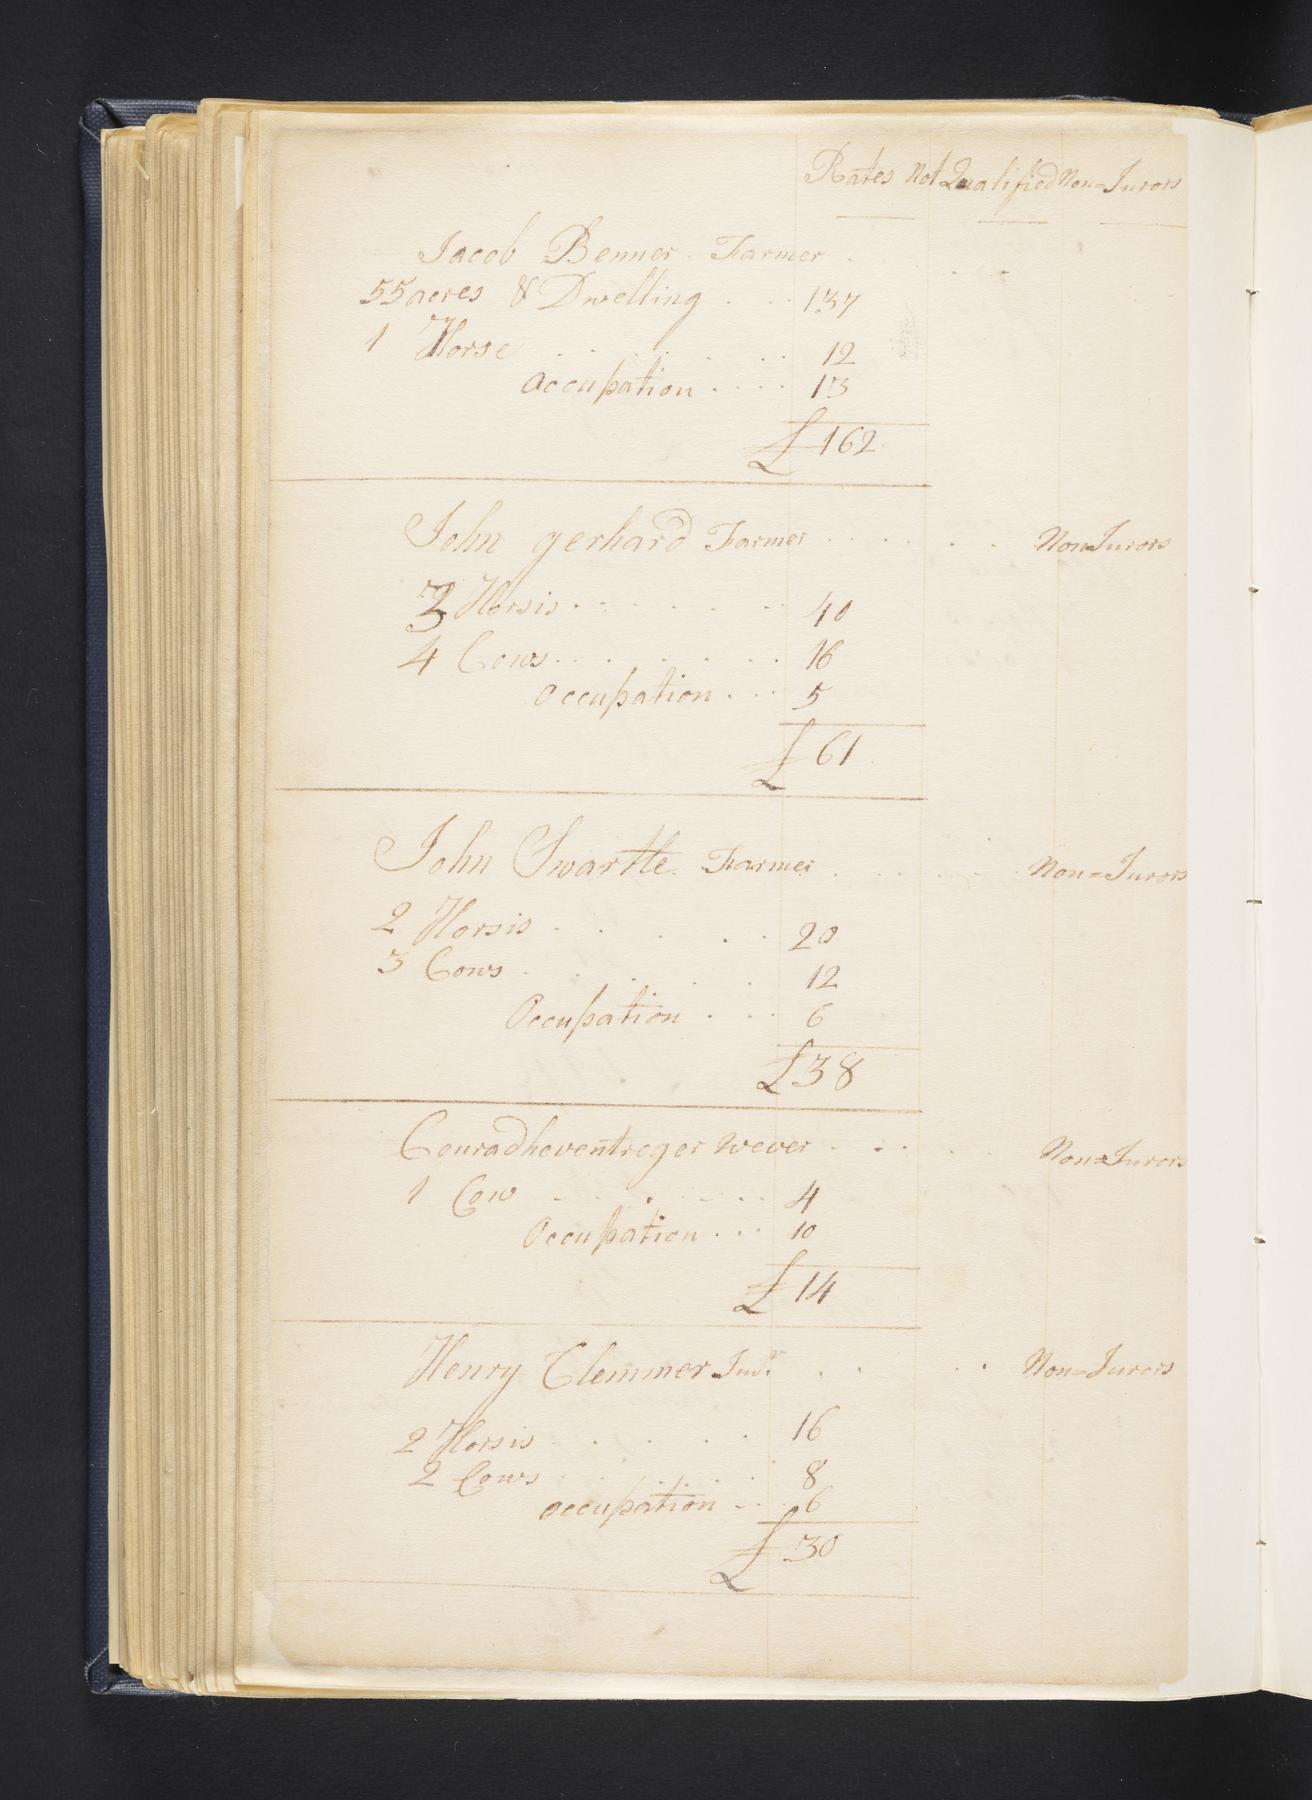 Rates Not Qualified Non=Jurors
Jacob Benner Farmer
55 acres & Dwelling 137
1 Horse 12
Occupation 13
£ 162
John gerhard Farmer Non=Jurors
3 Horsis 40
4 Cows 16
Occupation 5
£ 61
John Swartle Farmer Non=Jurors
2 Horsis 20
3 Cows 12
Occupation 6
£ 38
Conrad heventreger wever Non=Jurors
1 Cow 4
Occupation 10
£ 14
Henry Clemmer Non=Jurors
2 Horsis 16
2 Cows 8
occupation 6
£ 30